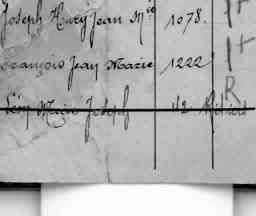 Joseph Mary Jean Mie 1078. 1+
François Jean Marie 1222 1+
R
Léon Marie Joseph